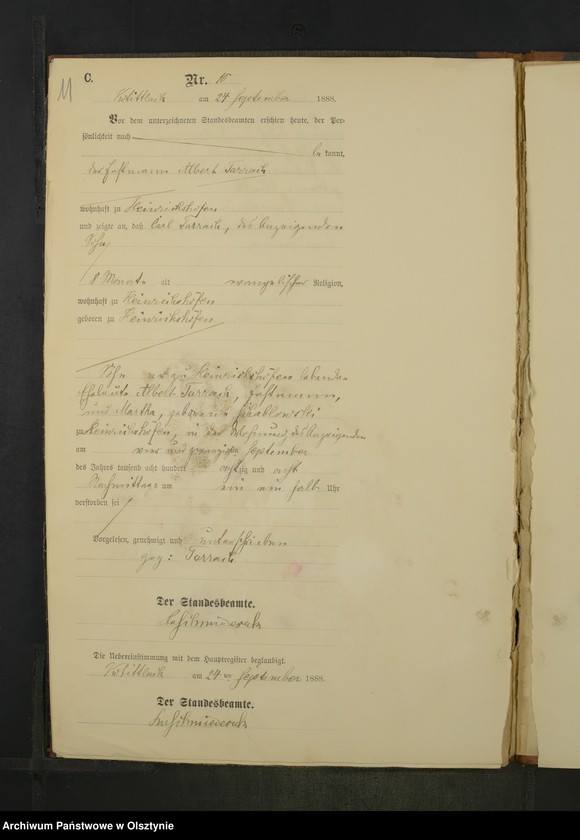 11
C.
Nr. 10
am 24 September 1888.
Vor dem unterzeichneten Standesbeamten erschien heute, der Per-
sönlichkeit nach
be kannt,
Albert Tarrach
wohnhaft zu Heinrichshöfen
und zeigte an, daß Carl Tarrach, des Anzeigenden
Sohn
8 Monate alt evangelischer Religion,
wohnhaft zu Heinrichshöfen
geboren zu Heinrichshöfen
Sohn zu Heinrichshöfen lebenden
Eheleute Albert Tarrach,
und Martha, geborene
zu Heinrichshöfen, in der Wohnung des Anzeigenden
am vier und zwanzigsten September
des Jahres tausend acht hundert achtzig und acht
Nachmittags um ein ein halb Uhr
verstorben sei
Vorgelesen, genehmigt und unterschrieben
gez: Tarrach
Der Standesbeamte.
Die Uebereinstimmung mit dem Hauptregister beglaubigt.
am 24 September 1888.
Der Standesbeamte.
Archiwum Państwowe w Olsztynie